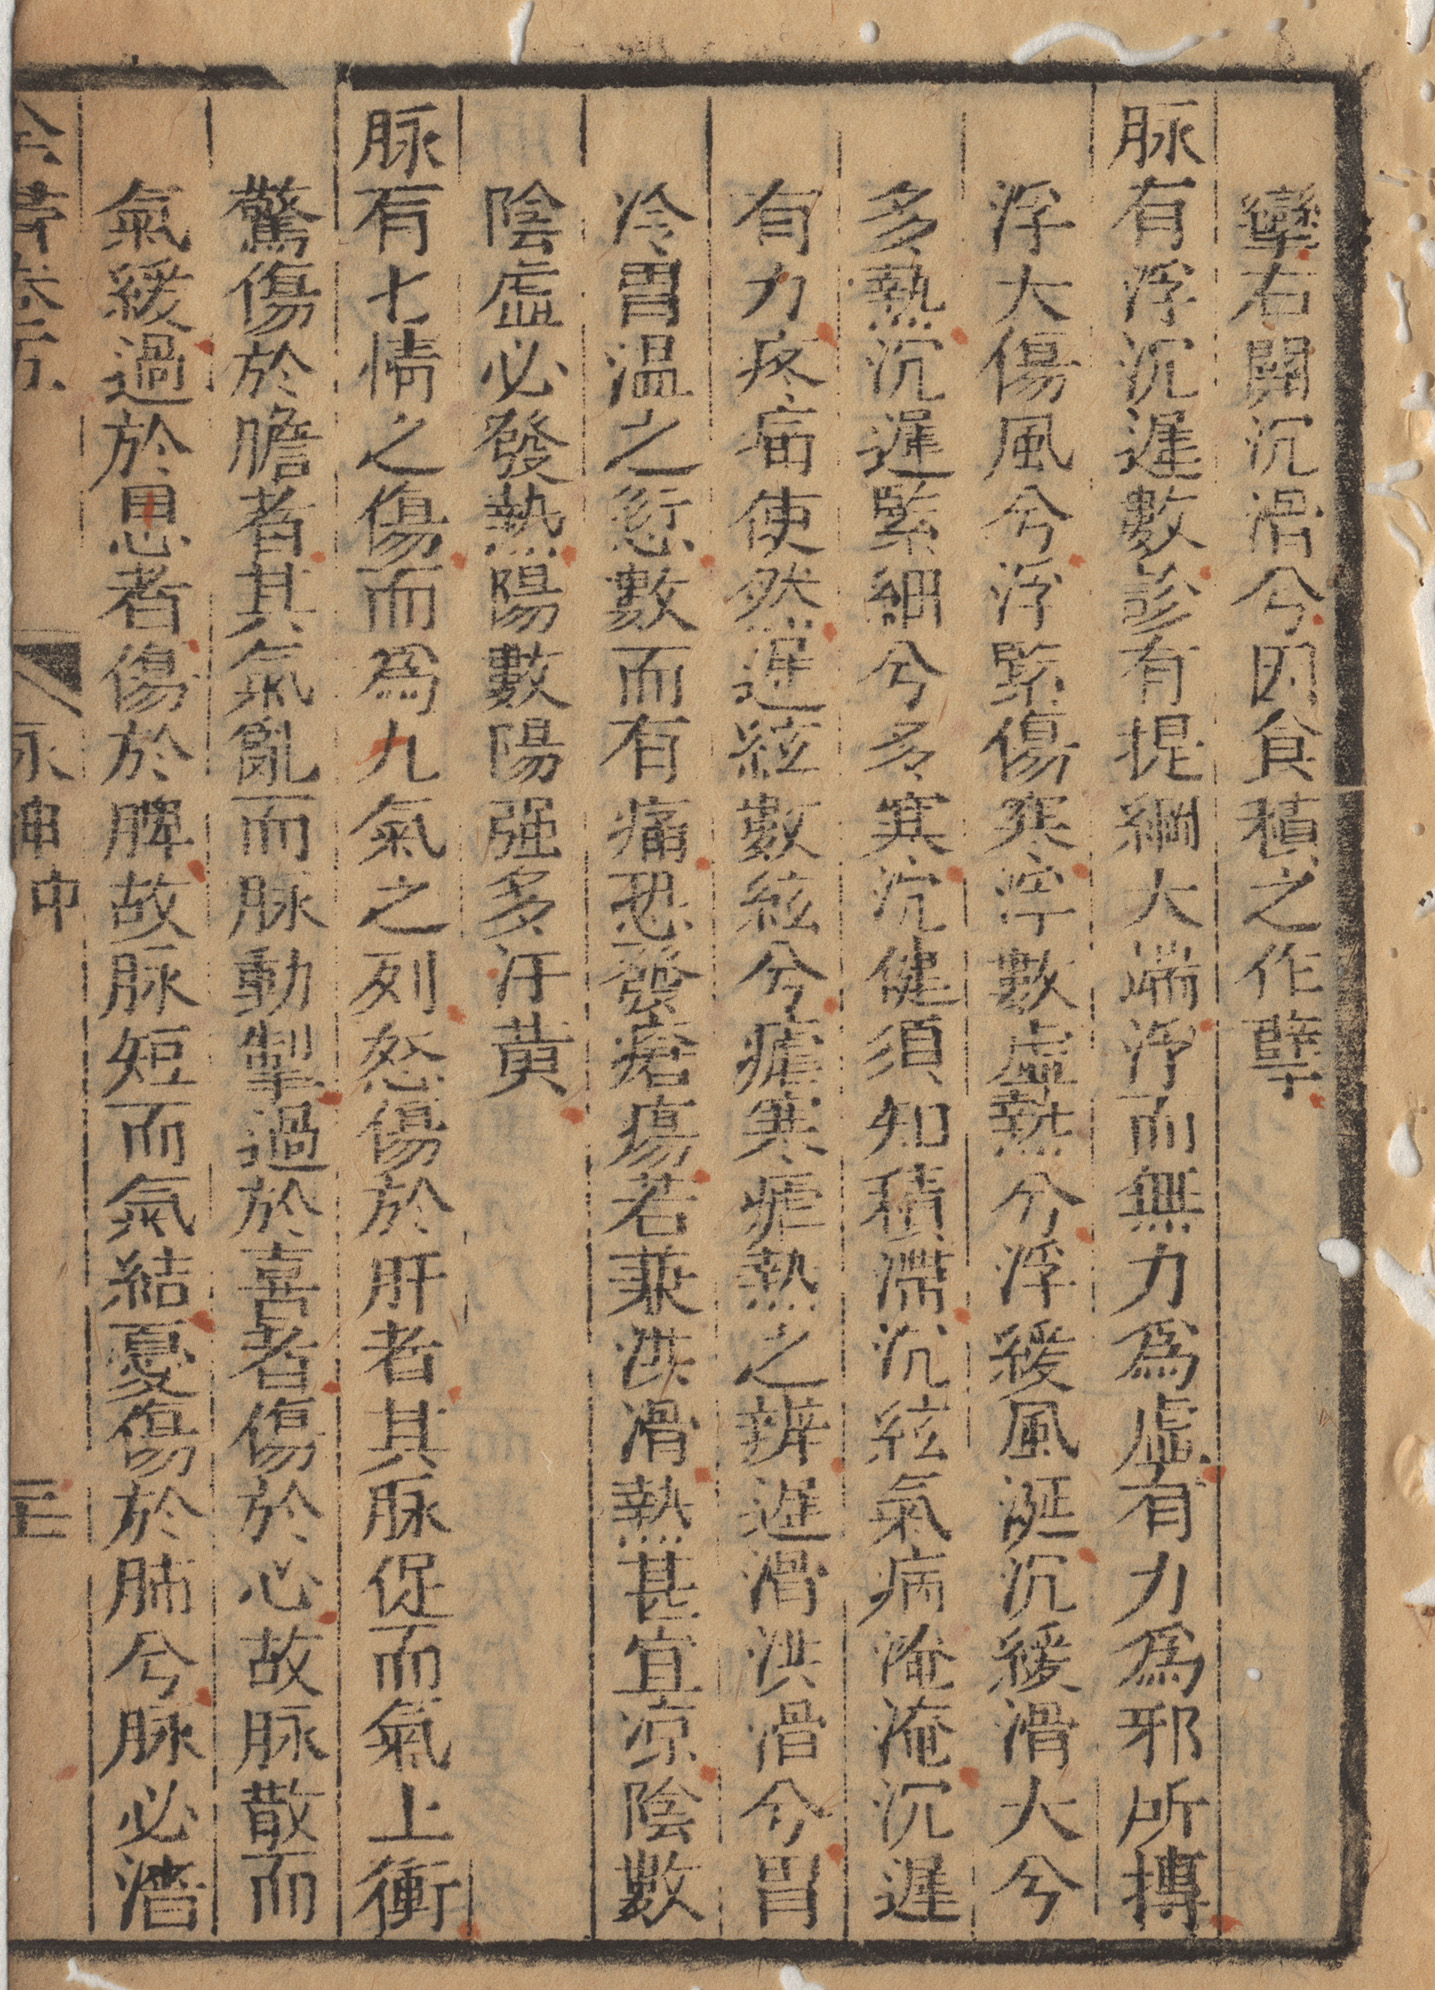 孿右關沉滑兮因食積之作孽
脉有浮沉遲數診有提綱大端浮而無力爲虛有力爲邪所摶
浮大傷風兮浮緊傷寒浮數虛熱兮浮緩風涎沉緩滑大兮
多熱沉遲緊細兮多寒沉健須知積滯沉絃氣病淹淹沉遲
有力疼痛使然遲絃數絃兮瘧寒瘧熱之辨遲滑洪滑兮胃
冷胃温之愆數而有痛恐發瘡瘍若兼洪滑熱甚宜凉陰數
陰虛必發熱陽數陽强多汗黄
脉有七情之傷而爲九氣之列怒傷於肝者其脉促而氣上衝
驚傷於膽者其氣亂而脉動掣過於喜者傷於心故脉散而
氣緩過於思者傷於脾故脉短而氣結憂傷於肺兮脉必濇